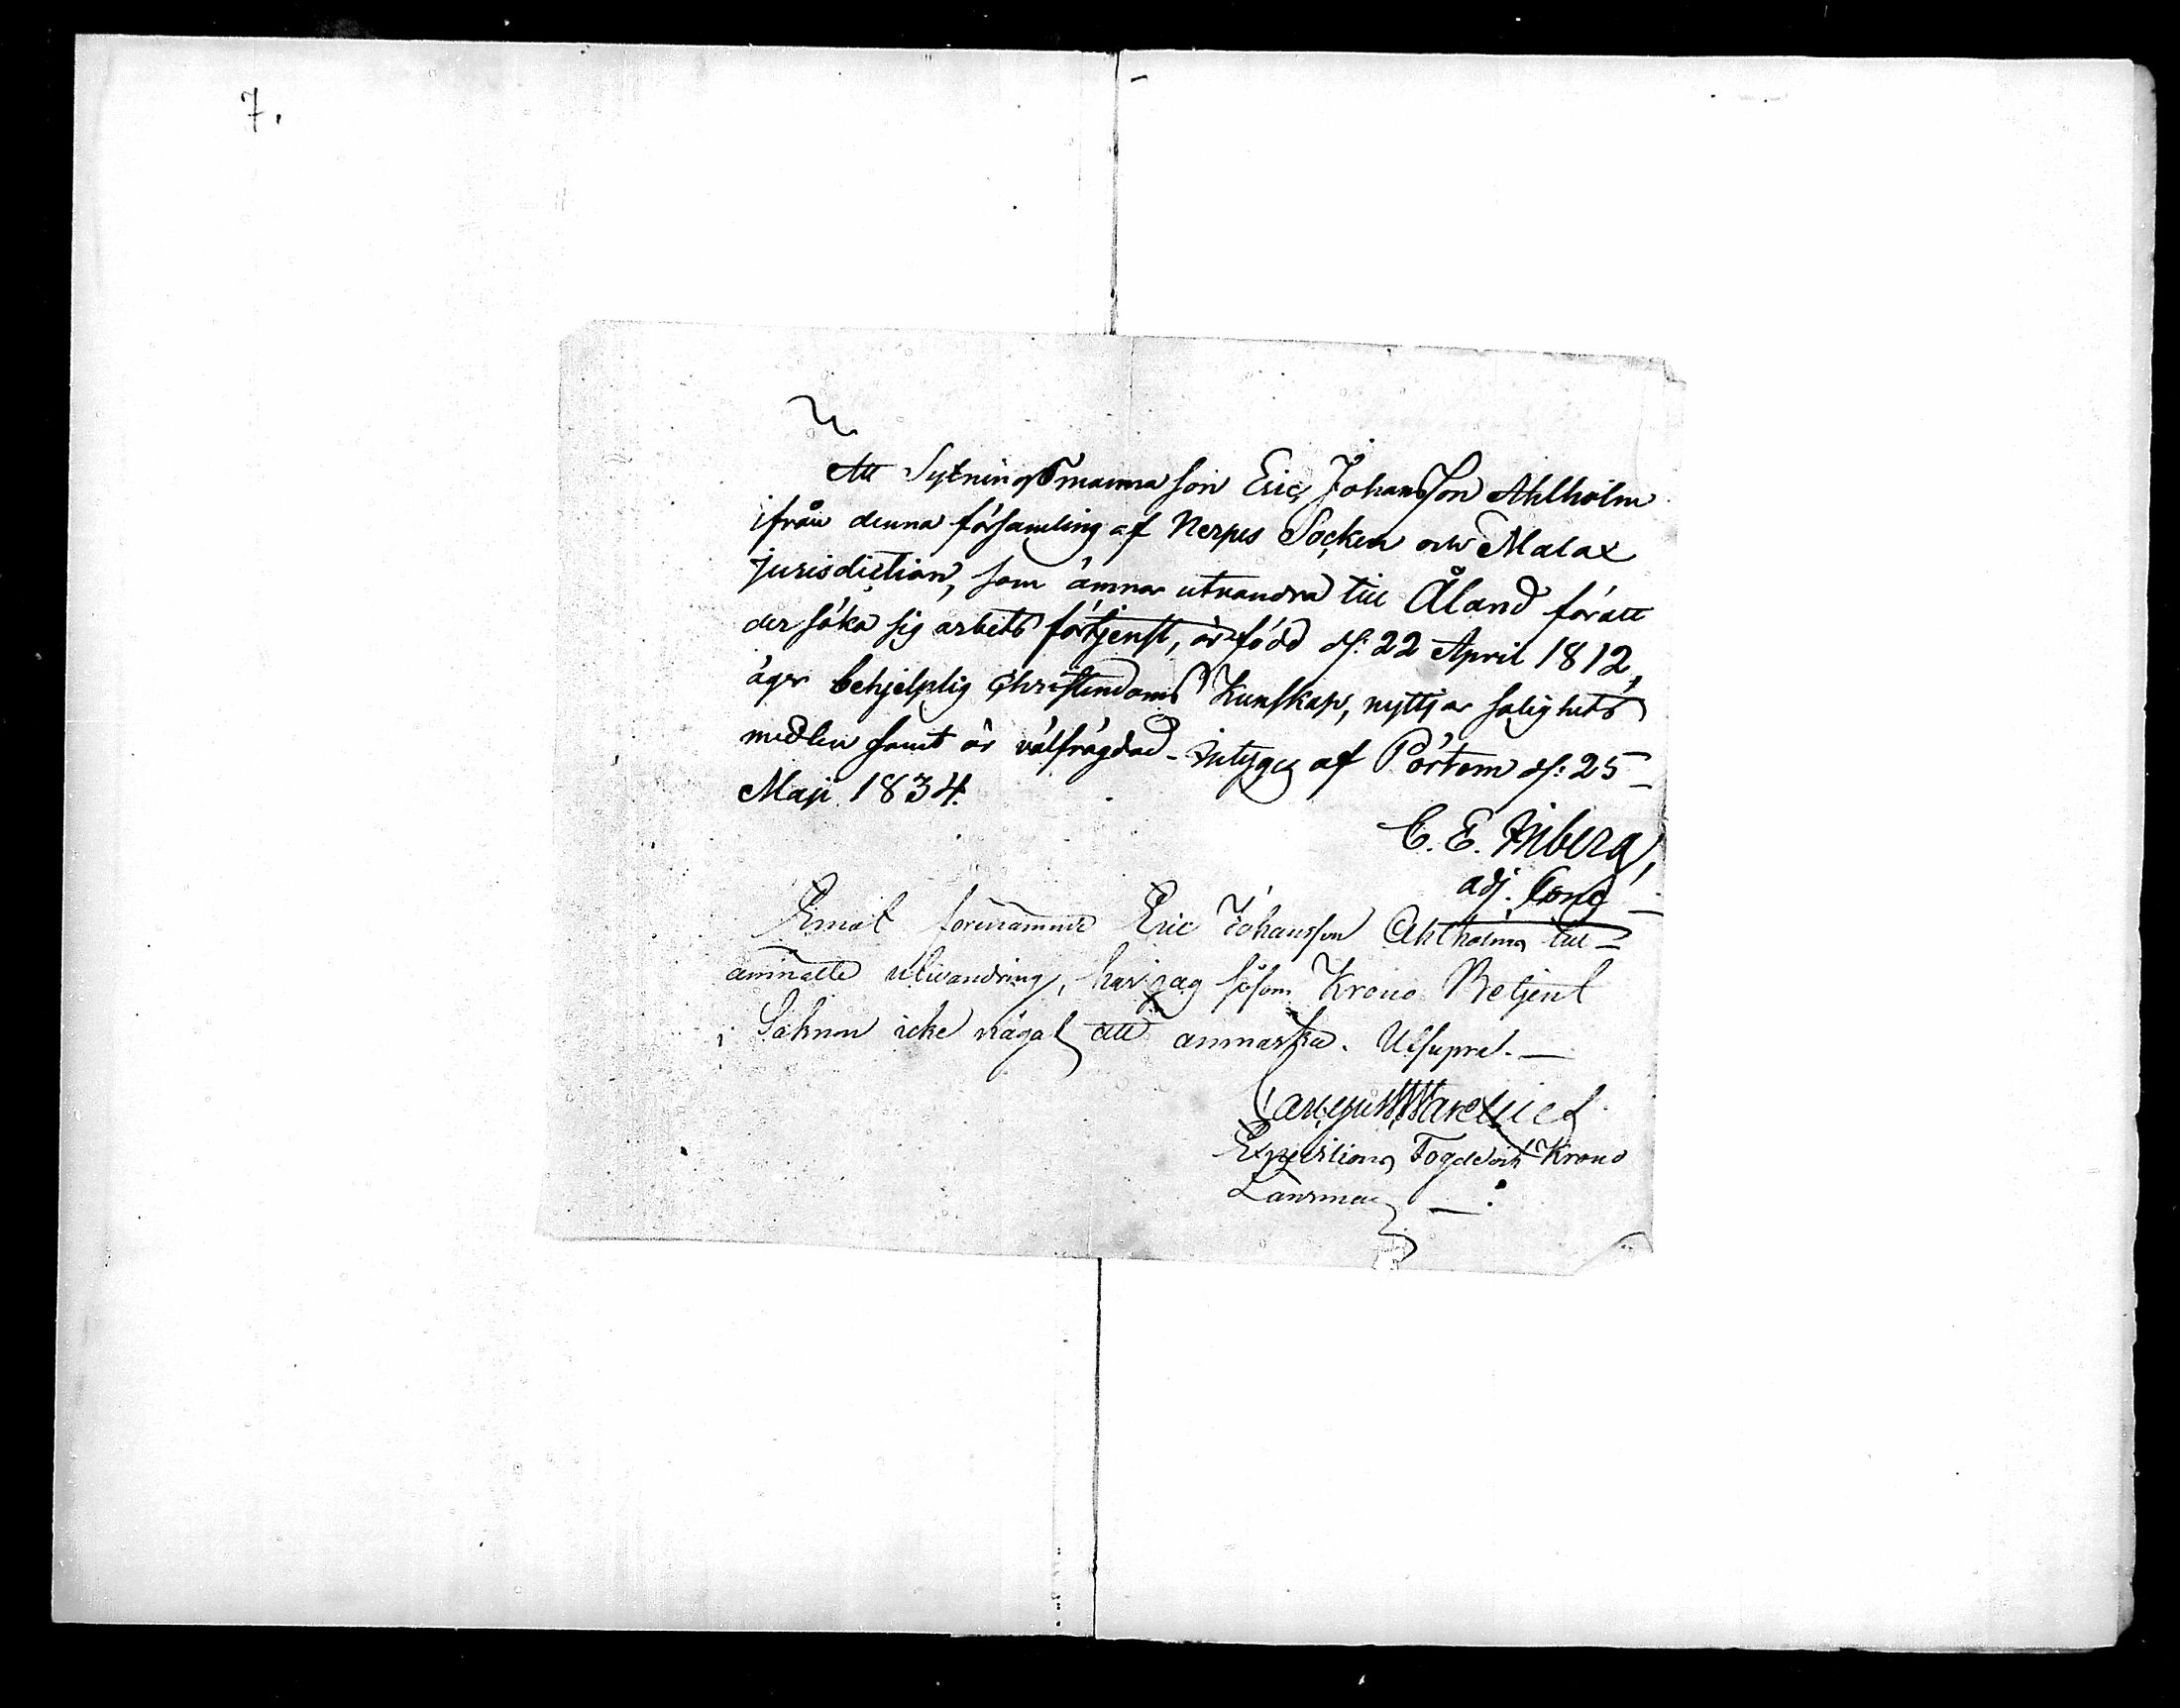 7.
Att Sytningsmanna son Eric Johansson Ahlholm
ifrån denna församling af Nerpes Socken och Malax
Jurisdiction, som ämnar utvandra till Åland för att
der söka sig arbets förtjenst, är född d: 22 April 1812,
äger behjelplig Christendoms Kunskap, nyttjar salighets
medlen samt är välfrägdad - Intygas af Pörtom d: 25
Maji 1834.
C. E. Inberg,
adj. Cong
Emot förenämnde Eric Johansson Ahlholms till-
ämnade utvandring, har jag såsom Krono Betjent
i Soknen icke något att anmärka. Utsupra. —
Expeditions Fogde och Krono
Länsman